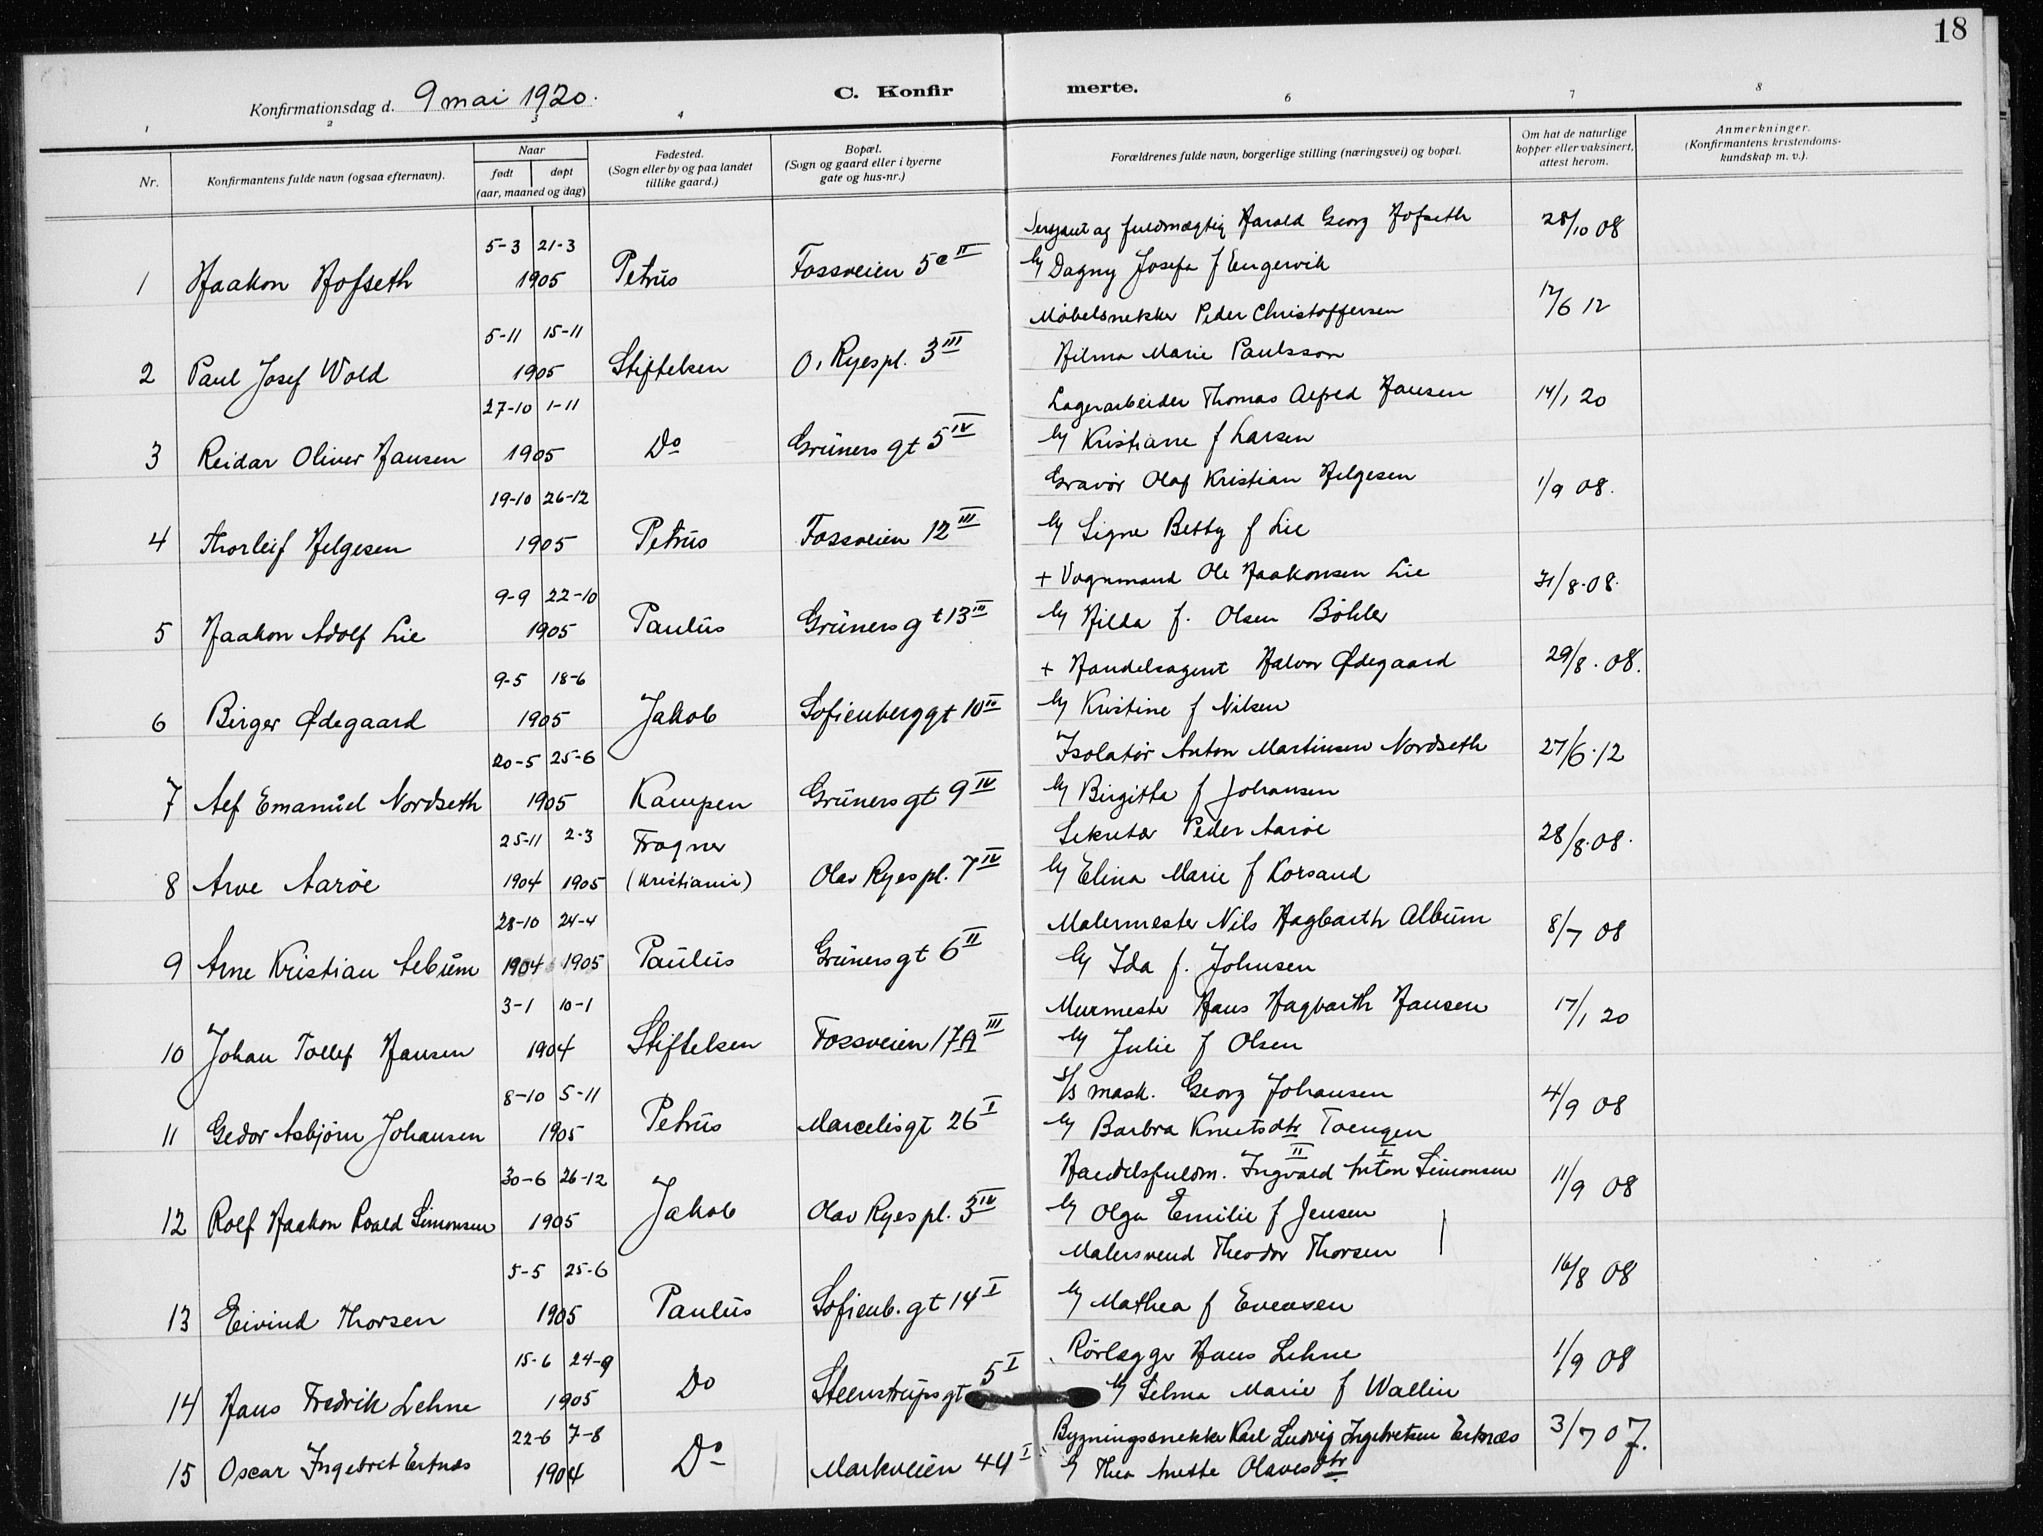 18
Konfirmationsdag d. 9 mai 1920.
C. Konfir merte.
1 2 3 4 6 7 8
Nr.
Konfirmantens fulde navn (ogsaa efternavn).
Naar
født døpt
(aar, maaned og dag)
Fødested.
(Sogn eller by og paa landet
tillike gaard.)
Bopæl.
(Sogn og gaard eller i byerne
gate og hus-nr.)
Forældrenes fulde navn, borgerlige stilling (næringsvei) og bopæl.
Om hat de naturlige
kopper eller vaksinert,
attest herom.
Anmerkninger.
(Konfirmantens kristendoms-
kundskap m. v.).
5-3 21-3 Sersjant og fuldmægtig Harald Georg Hofseth 28/10 08
1 Haakon Hofseth 1905 Petrus Fossveien 5c II Dagny Josefa f Engervik
5-11 15-11 Møbelsnekker Peder Christoffersen 12/6 12
2 Paul Josef Wold 1905 Stiftelsen O. Ryespl. 3 III Hilma Marie Paulsson
27-10 1-11 Lagerarbeider Thomas Alfred Hansen 14/1 20
3 Reidar Oliver Hansen 1905 Do Grüners gt 5 IV Kristiane f Larsen
19-10 26-12 Gravør Olaf Kristian Helgesen 1/9 08.
4 Thorleif Helgesen 1905 Petrus Fossveien 12 III Signe Betty f Lie
9-9 22-10 + Vognmand Ole Haakonsen Lie 31/8.08.
5 Haakon Adolf Lie 1905 Paulus Grüners gt 13 III Hilda f. Olsen Bøhler
9-5 18-6 + Handelsagent Halvor Ødegaard 29/8.08.
6 Birger Ødegaard 1905 Jakob Sofienberggt 10 IV Kristine f Nilsen
20-5 25-6 Isolatør Anton Martinsen Nordseth 27/6.12
7 Alf Emanuel Nordseth 1905 Kampen Grüners gt 9 IV Birgitta f Johansen
25-11 2-3 Frogner Sekretær Peder Aarøe 28/8.08.
8 Arve Aarøe 1904 1905 (Kristiania) Olav Ryes pl. 7 IV Elina Marie f Korsand
28-10 24-4 Malermester Nils Hagbarth Album 8/7 08
9 Arne Kristian Album 1904 1905 Paulus Grüners gt 6 II Ida f. Johnsen
3-1 10-1 Murmester Hans Hagbarth Hansen 17/1 20
10 Johan Tollef Hansen 1904 Stiftelsen Fossveien 17A III Julie f Olsen
8-10 5-11 mask. Georg Johansen 4/9 08
11 Gedor Asbjørn Johansen 1905 Petrus Marcelisgt 26 I Barbra Knutsdtr Toengen
30-6 26-12 Handelsfuldm. Ingvald II Anton I Simonsen 11/9 08
12 Rolf Haakon Roald Simonsen 1905 Jakob Olav Ryes pl. 3 IV Olga Emilie f Jensen
5-5 25-6 Malersvend Theodor Thorsen 16/8 08
13 Eivind Thorsen 1905 Paulus Sofienb. gt 14 I Mathea f Evensen
15-6 24-9 Rørlegger Hans Lehne 1/9 08
14 Hans Fredrik Lehne 1905 Do Steenstrups gt 5 I Selma Marie f Wallin
22-6 7-8 Bygningssnekker Karl Ludvig Ingebretsen Ertnæs 3/7 07.
15 Oscar Ingebret Ertnæs 1904 Do Markveien 44 I Thea Anette Olavesdtr